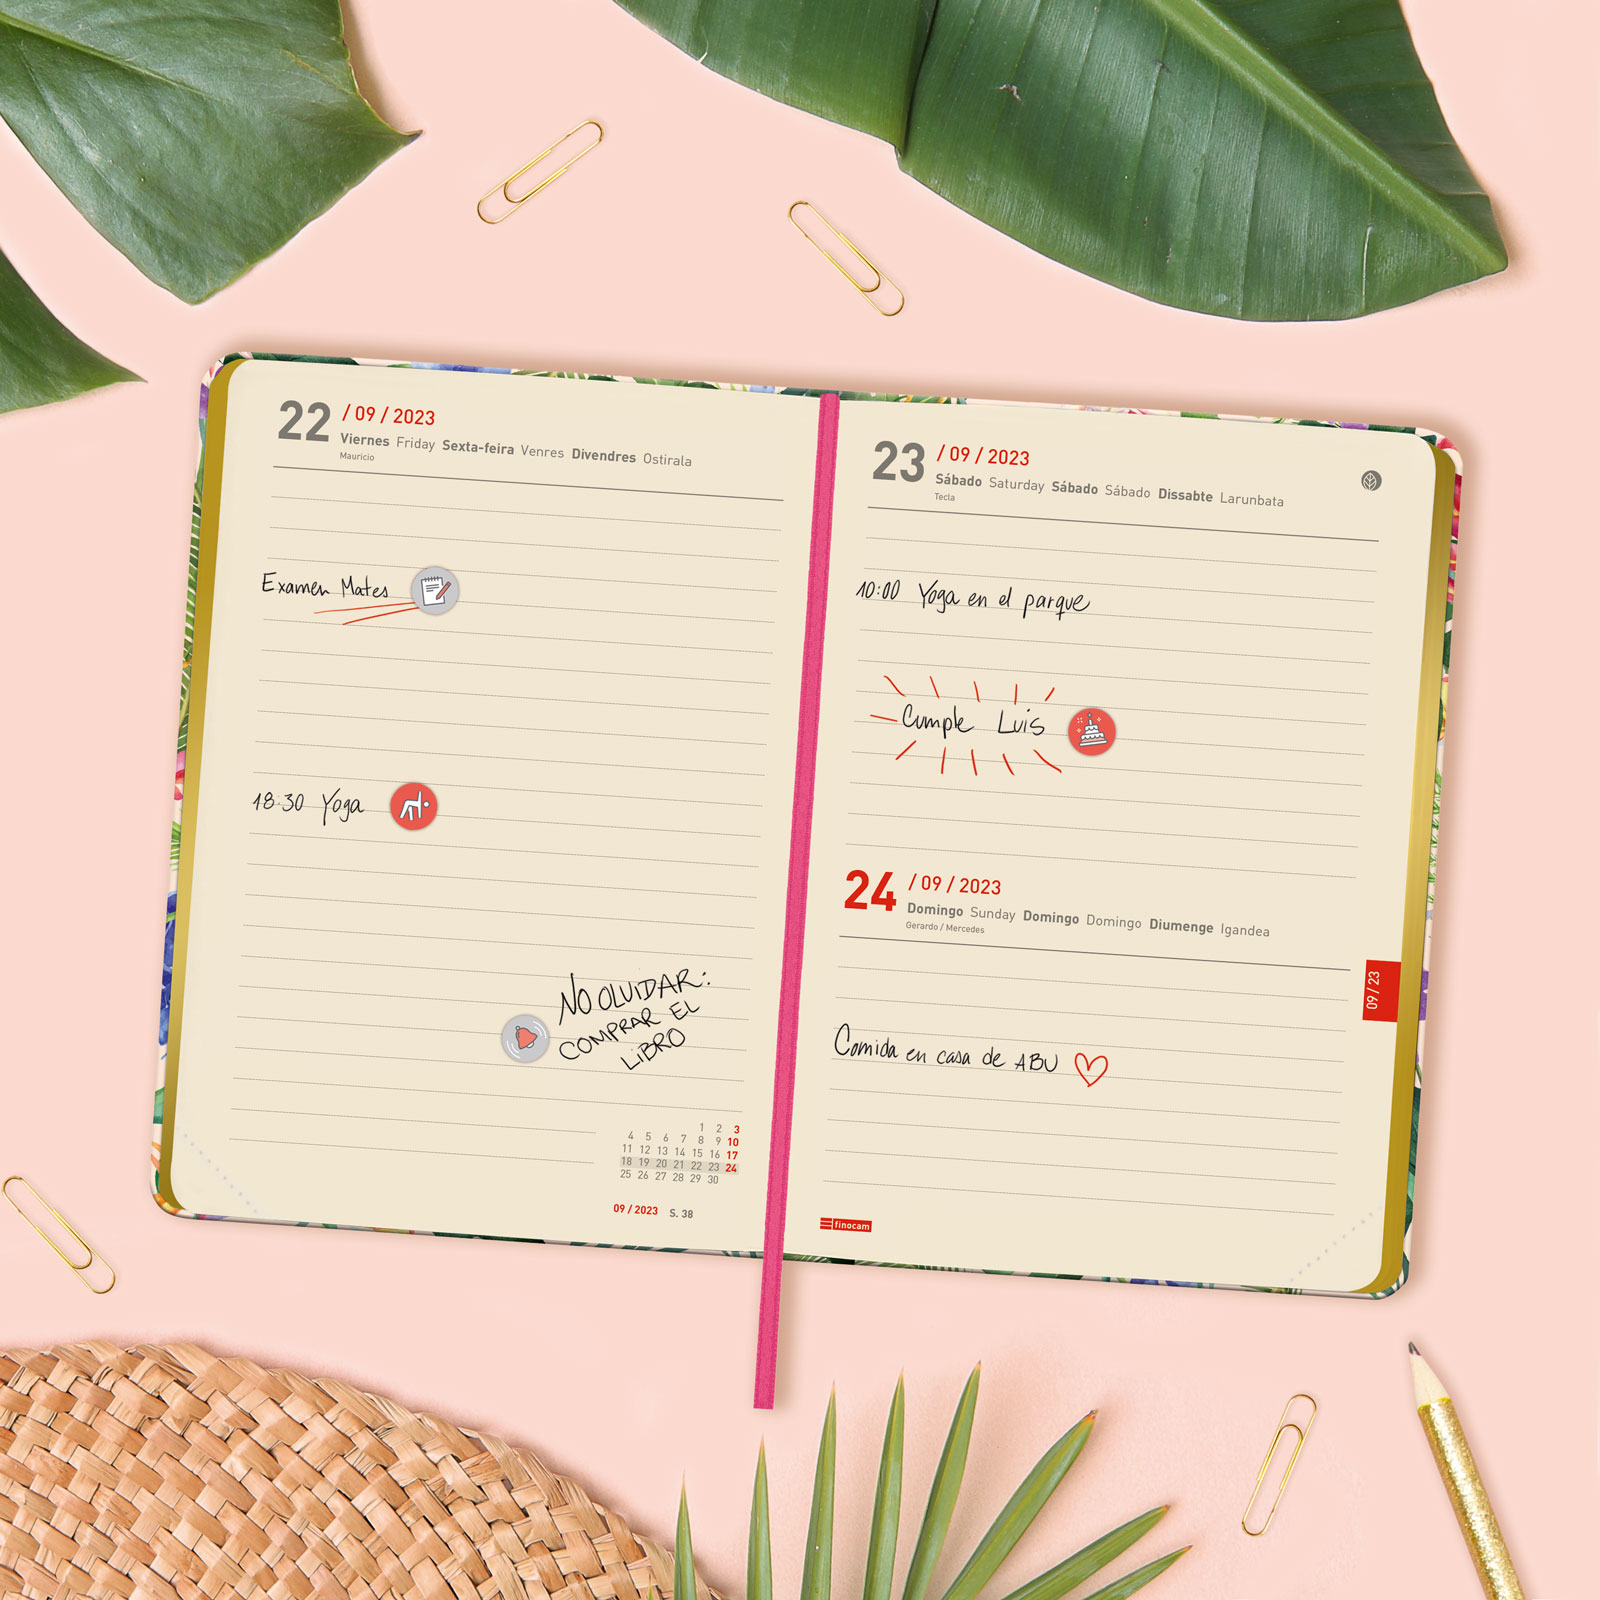 22 / 09 / 2023
Viernes Friday Sexta-feira Venres Divendres Ostirala
Mauricio
Examen Mates
18:30 Yoga
NO OLVIDAR:
COMPRAR EL
LIBRO
1 2 3
4 5 6 7 8 9 10
11 12 13 14 15 16 17
18 19 20 21 22 23 24
25 26 27 28 29 30
09 / 2023 S. 38
23 / 09 / 2023
Sábado Saturday Sábado Sábado Dissabte Larunbata
Tecla
10:00 Yoga en el parque
Cumple Luis
24 / 09 / 2023
Domingo Sunday Domingo Domingo Diumenge Igandea
Gerardo / Mercedes
09 / 23
Comida en casa de ABU
finocam